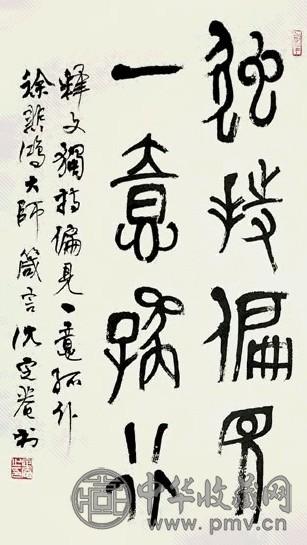 獨持偏見
一意孤行
釋文獨持偏見一意孤行
徐悲鴻大師箴言沈定菴書
中华收藏网
www.pmv.cn